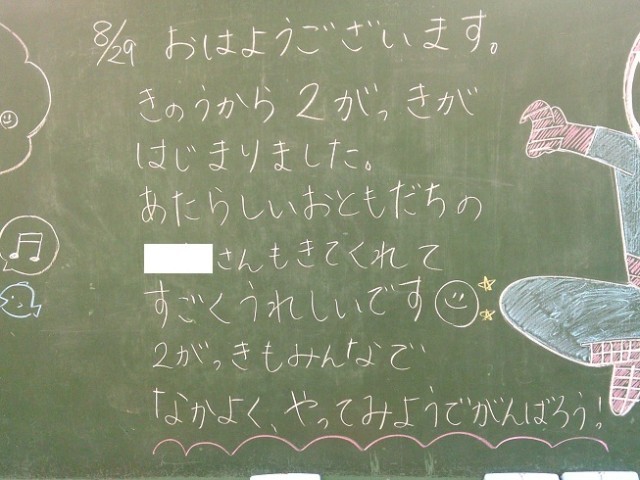 8/29 おはようございます。
きのうから2がっきが
はじまりました。
あたらしいおともだちの
さんもきてくれて
すごくうれしいです
2がっきもみんなで
なかよく、やってみようでがんばろう!